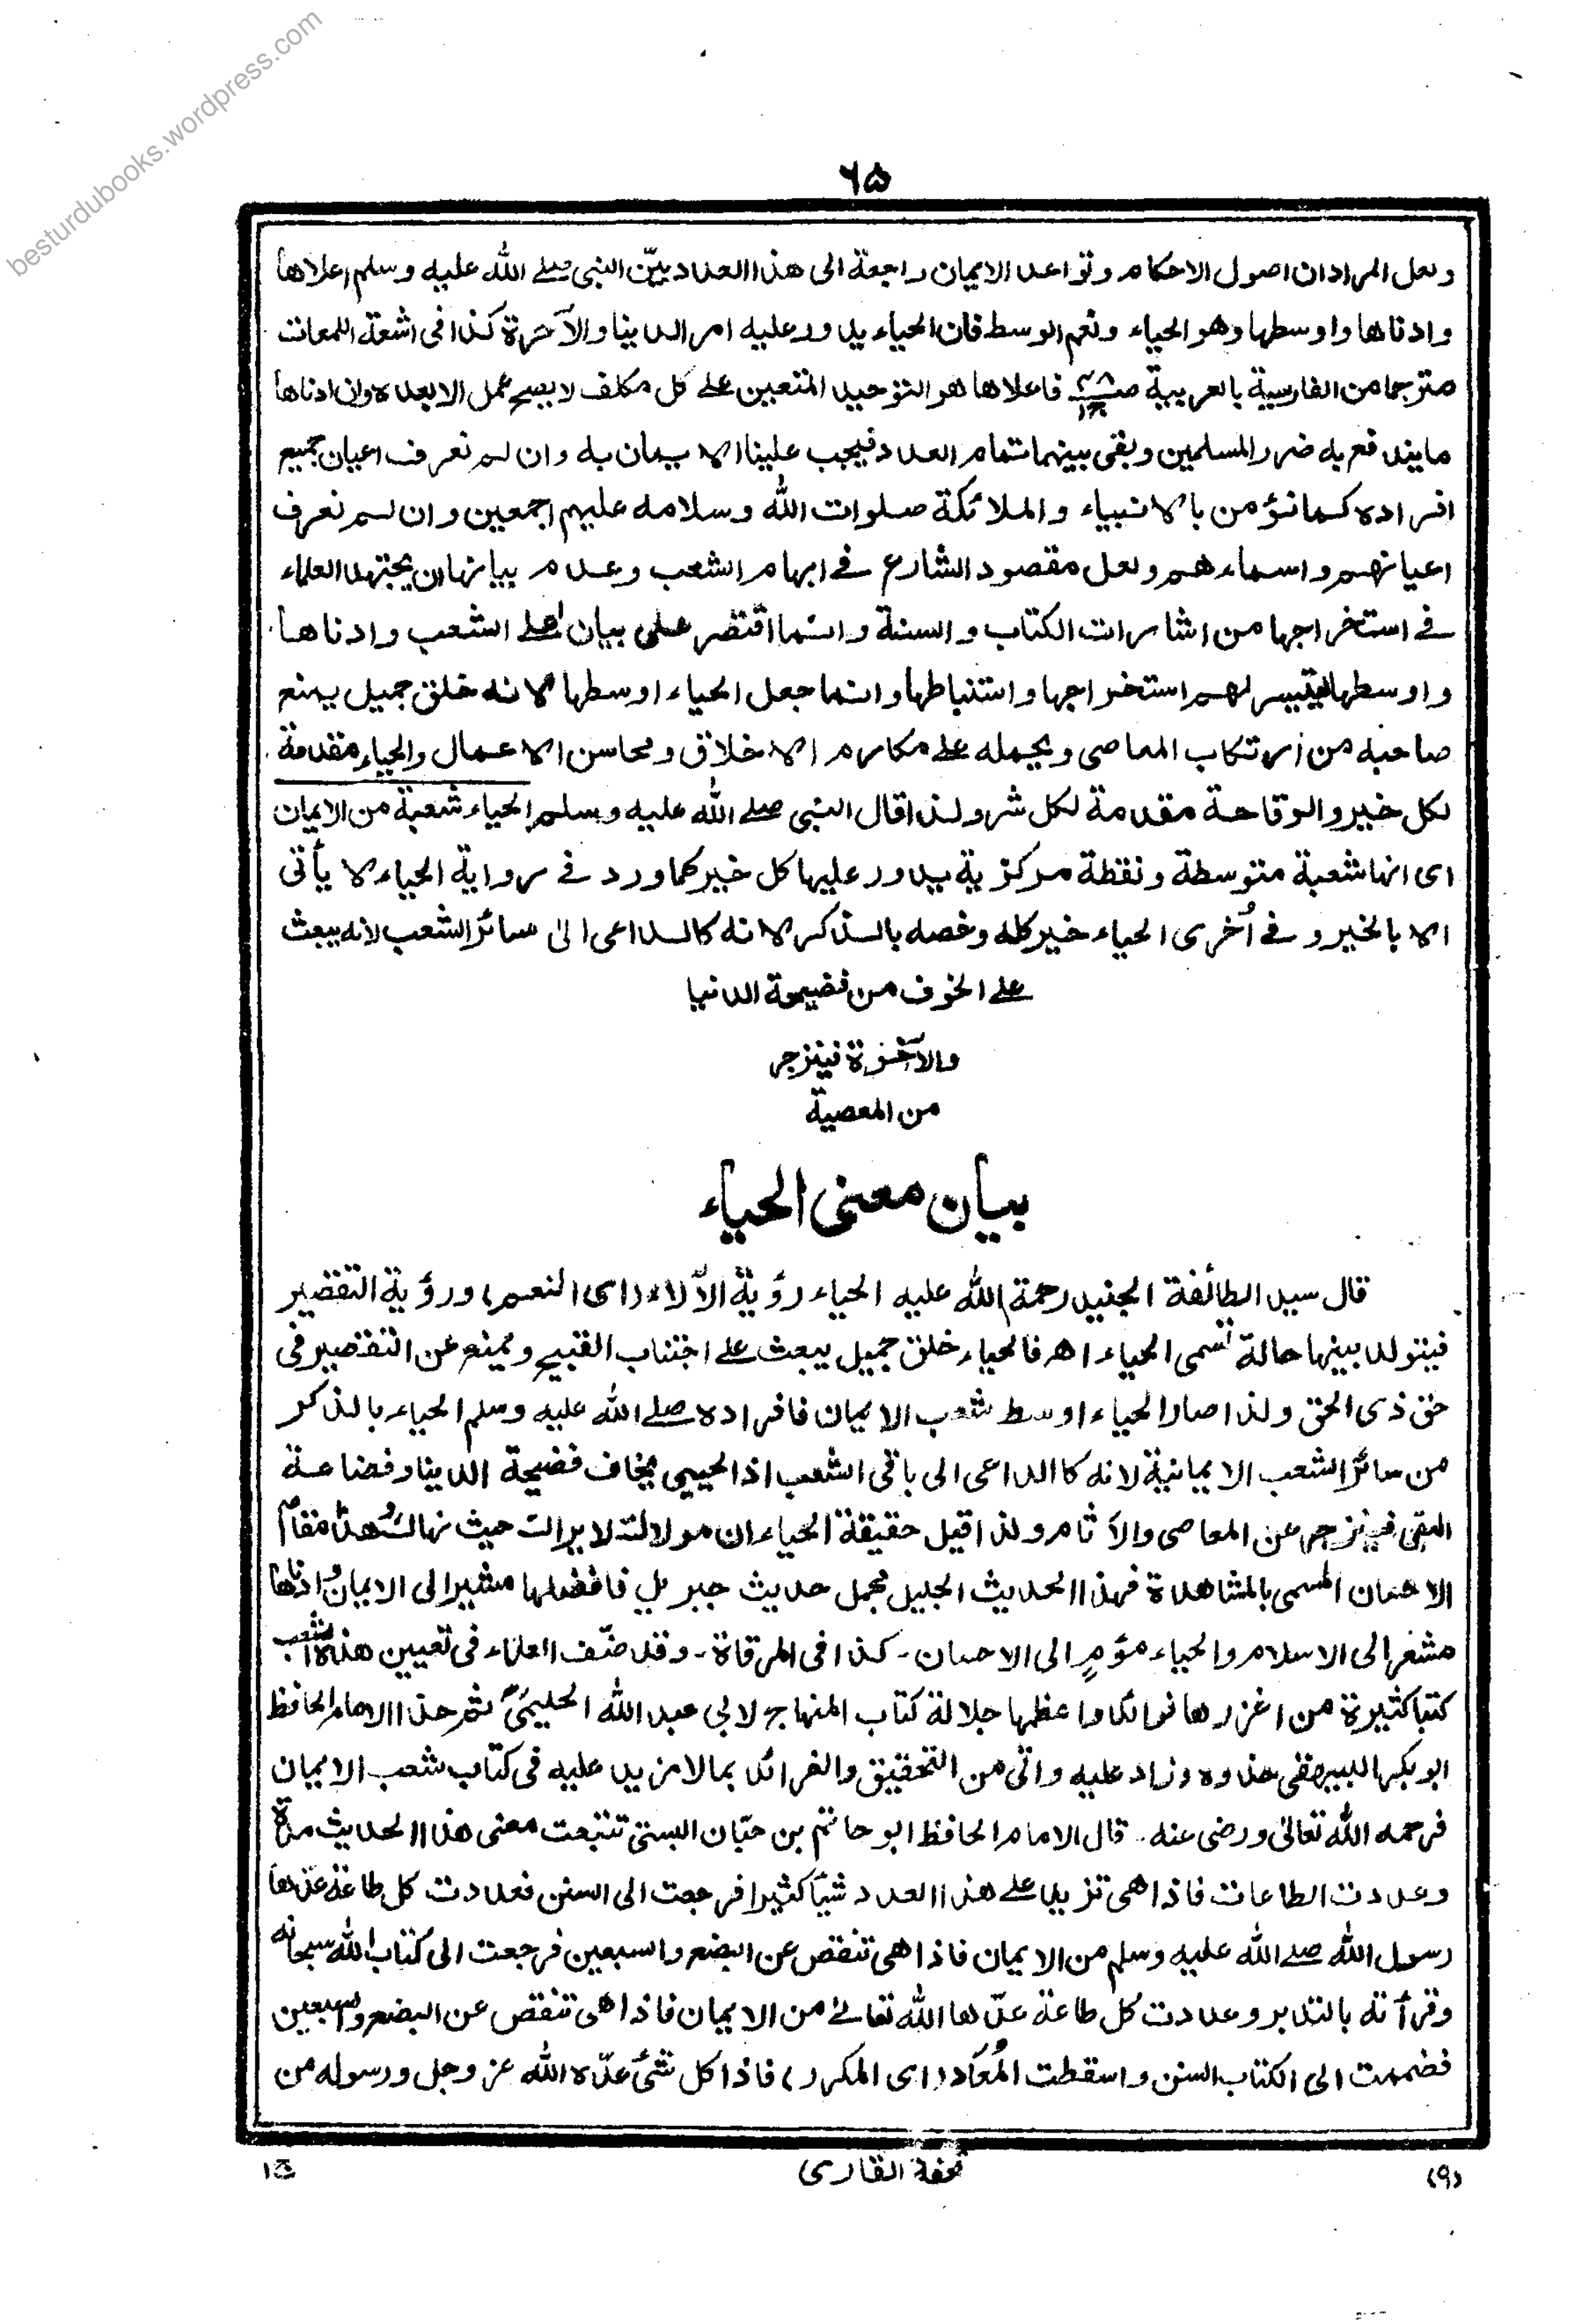 besturdubooks.wordpress.com
٦٥
ولعل المراد ان اصول الاحكام وقواعد الايمان راجعة الى هذا العدد بيّن النبى صلے الله عليه وسلم اعلاها
وادناها واوسطها وهو الحياء ونعم الوسط فان الحياء يدور عليه امر الدينا والآخرة كذا فى اشعة اللمعات
مترجما من الفارسية بالعربية فاعلاها هو التوحيد المتعين علے كل مكلف لا يصح عمل الا بعده وان ادناها
ما يندفع به ضرر المسلمين وبقى بينهما تمام العدد فيجب علينا الايمان به وان لم نعرف اعيان جميع
افراده كما نؤمن بالانبياء والملائكة صلوات الله وسلامه عليهم اجمعين وان لم نعرف
اعيانهم واسماءهم ولعل مقصود الشارع فے ابهام الشعب وعدم بيانها ان يجتهد العلماء
فے استخراجها من اشارات الكتاب والسنة وانما اقتصر على بيان اعلے الشعب وادناها
واوسطها ليتيسر لهم استخراجها واستنباطها وانما جعل الحياء اوسطها لانه خلق جميل يمنع
صاحبه من ارتكاب المعاصى ويحمله علے مكارم الاخلاق ومحاسن الاعمال والحياء مقدمة
لكل خير والوقاحة مقدمة لكل شر ولذا قال النبى صلے الله عليه وسلم الحياء شعبة من الايمان
اى انها شعبة متوسطة ونقطة مركزية يدور عليها كل خير كما ورد فے رواية الحياء لا يأتى
الا بالخير و فے أخرى الحياء خير كله وخصه بالذكر لانه كالداعى الى سائر الشعب لانه يبعث
علے الخوف من فضيحة الدنيا
والآخرة فينزجر
من المعصية
بيان معنى الحياء
قال سيد الطائفة الجنيد رحمة الله عليه الحياء رؤية الآلاء (اى النعم) ورؤية التقصير
فيتولد بينها حالة تسمى الحياء اه فالحياء خلق جميل يبعث علے اجتناب القبيح ويمنع عن التقصير فى
حق ذى الحق ولذا صار الحياء اوسط شعب الايمان فافراده صلے الله عليه وسلم الحياء بالذكر
من سائر الشعب الايمانية لانه كا الداعى الى باقى الشعب اذ الحيى يخاف فضيحة الدينا وفضاعة
العقبى فينزجر عن المعاصى والآثام ولذا قيل حقيقة الحياء ان مولاك لا يراك حيث نهاك وهذا مقام
الاحسان المسمى بالمشاهدة فهذا الحديث الجليل مجمل حديث جبريل فافضلها مشير الى الايمان وادناها
مشعر الى الاسلام والحياء مؤمٍ الى الاحسان - كذا فى المرقاة - وقد صنّف العلماء فى تعيين هذه الشعب
كتبا كثيرة من اغزرها فوائد واعظمها جلالة كتاب المنهاج لابى عبد الله الحليمىؒ ثم حذا الامام الحافظ
ابو بكر البيهقى حذوه وزاد عليه واتى من التحقيق والفرائد بما لا مزيد عليه فى كتاب شعب الايمان
فرحمه الله تعالى ورضى عنه. قال الامام الحافظ ابو حاتم بن حبّان البستى تتبعت معنى هذا الحديث مدة
وعددت الطاعات فاذا هى تزيد علے هذا العدد شيأ كثيرا فرجعت الى السنن فعددت كل طاعة عدّها
رسول الله صلے الله عليه وسلم من الايمان فاذا هى تنقص عن البضع والسبعين فرجعت الى كتاب الله سبحانه
وقرأته بالتدبر وعددت كل طاعة عدّها الله تعالے من الايمان فاذا هى تنقص عن البضع والسبعين
فضممت الى الكتاب السنن واسقطت المُعَاد (اى المكرر) فاذا كل شئ عدّه الله عز وجل ورسوله من
(٩) تحفة القارى ج١